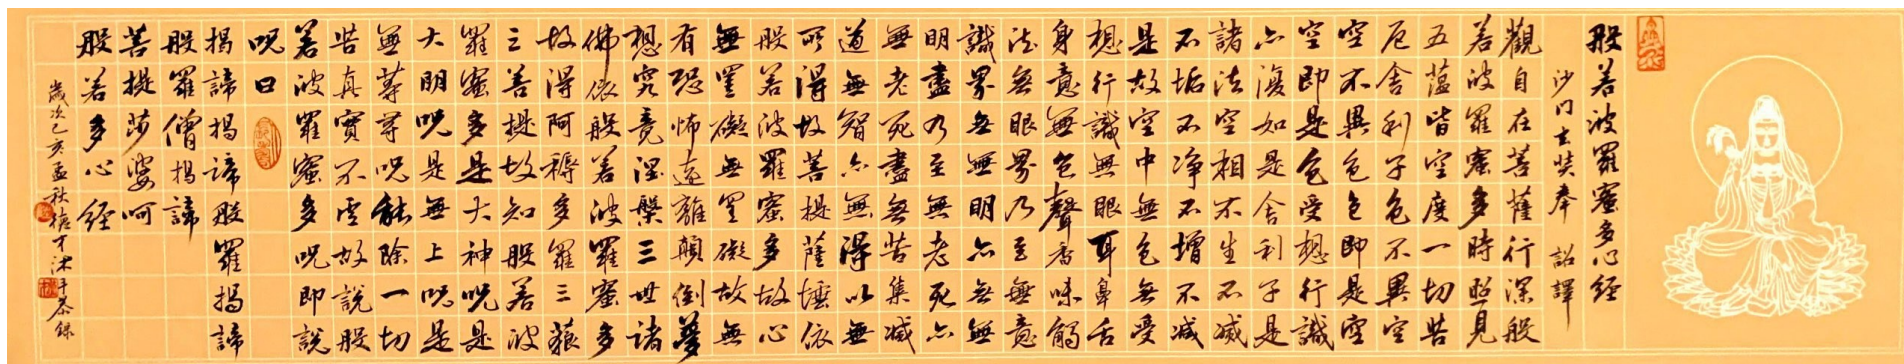 般若波羅蜜多心经
沙门玄奘奉 詔譯
觀自在菩薩行深般
若波羅蜜多時照見
五蕴皆空度一切苦
厄舍利子色不異空
空不異色色即是空
空即是色受想行識
亦復如是舍利子是
諸法空相不生不滅
不垢不净不增不減
是故空中無色無受
想行識無眼耳鼻舌
身意無色聲香味觸
法無眼界乃至無意
識界無無明亦無無
明盡乃至無老死亦
無老死盡無苦集滅
道無智亦無得以無
所得故菩提薩埵依
般若波羅蜜多故心
無罣礙無罣礙故無
有恐怖遠離顛倒夢
想究竟涅槃三世諸
佛依般若波羅蜜多
故得阿耨多羅三藐
三菩提故知般若波
羅蜜多是大神呪是
大明呪是無上呪是
無等等呪能除一切
苦真實不虛故說般
若波羅蜜多呪即說
呪曰
揭諦揭諦般羅揭諦
般羅僧揭諦
菩提莎婆呵
般若多心经
歲次己亥孟秋德才沐手恭録